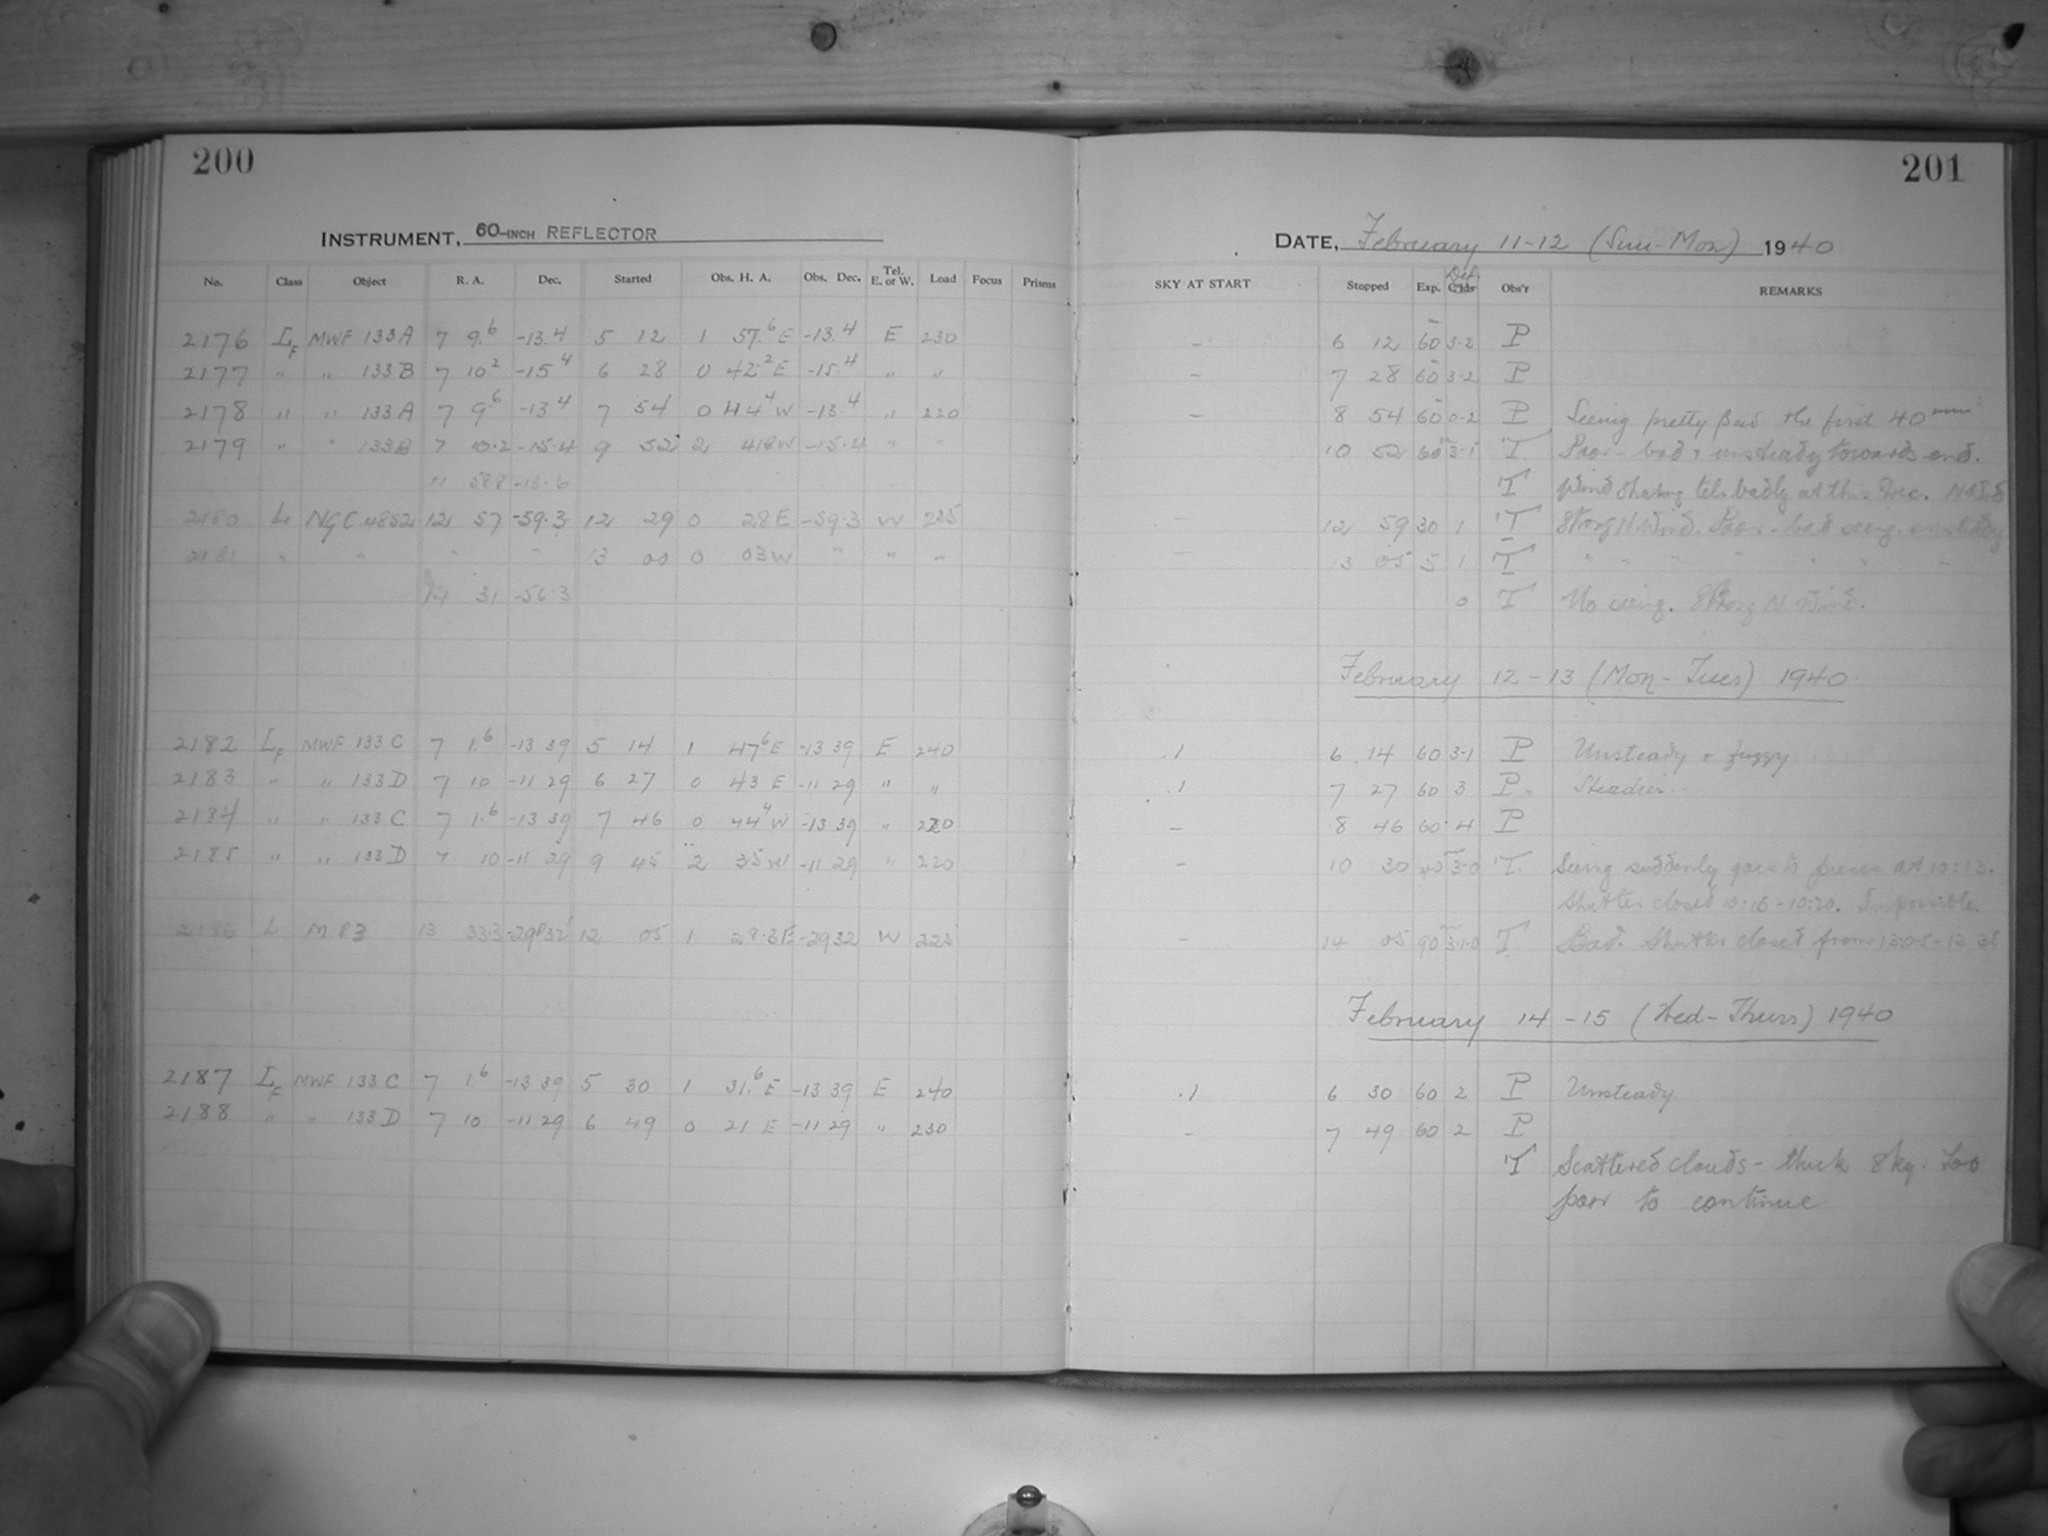 200
201
INSTRUMENT, 60-INCH REFLECTOR
DATE, February 11-12 (Sun-Mon) 1940
No. Class Object R. A. Dec. Started Obs. H. A. Obs. Dec. Tel. E. or W. Load Focus Prisms SKY AT START Stopped Exp. Def. Obs'r REMARKS
2176 L_F MWF 133A 7 9.6 -13.4 5 12 1 57.6 E -13.4 E 230 - 6 12 60 3-2 P
2177 " " 133B 7 10 2 -15 4 6 28 0 42.2 E -15.4 " " - 7 28 60 3-2 P
2178 " " 133A 7 9.6 -13 4 7 54 0 44 4 W -13.4 " 220 - 8 54 60 0-2 P Seeing pretty bad the first 40 min
2179 " " 133B 7 10.2 -15.4 9 52 2 41 W -15.4 " " 10 52 60 3-1 T Poor - bad & unsteady towards end.
" 588 -18.6 T Wind shaking tel. badly at this Dec.
2180 L NGC 4852 12 57 -59.3 12 29 0 28 E -59.3 W 225 - 12 59 30 1 T Strong N Wind. Poor - bad seeing. unsteady
2181 " " " " 13 00 0 03 W " " " - 13 05 5 1 T " " " " " " "
14 31 -56.3 0 T No seeing. Strong N Wind.
February 12-13 (Mon-Tues) 1940
2182 L_F MWF 133C 7 1.6 -13 39 5 14 1 47 6 E -13 39 E 240 .1 6 14 60 3-1 P Unsteady + fuzzy
2183 " " 133D 7 10 -11 29 6 27 0 43 E -11 29 " " .1 7 27 60 3 P Steadier
2184 " " 133C 7 1.6 -13 39 7 46 0 44 4 W -13 39 " 220 - 8 46 60 4 P
2185 " " 133D 7 10 -11 29 9 45 2 35 W -11 29 " 220 - 10 30 40 3-0 T Seeing suddenly goes to pieces at 10:13.
Shutter closed 10:15-10:20. Impossible.
2186 L M 83 13 33.3 -29 32 12 05 1 28.3 E -29 32 W 225 - 14 05 90 3-1-0 T Bad. Shutter closed from 13:05-13 35
February 14-15 (Wed-Thurs) 1940
2187 L_F MWF 133C 7 1.6 -13 39 5 30 1 31.6 E -13 39 E 240 .1 6 30 60 2 P Unsteady
2188 " " 133D 7 10 -11 29 6 49 0 21 E -11 29 " 230 - 7 49 60 2 P
T Scattered clouds - thick sky. Too
poor to continue